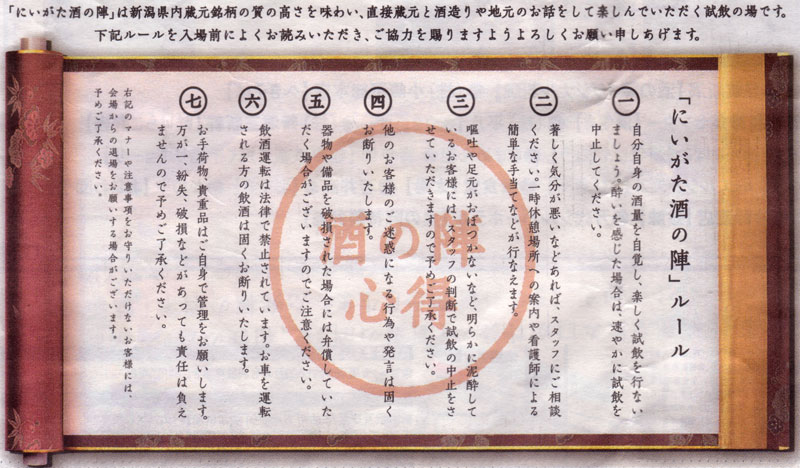 「にいがた酒の陣」は新潟県内蔵元銘柄の質の高さを味わい、直接蔵元と酒造りや地元のお話をして楽しんでいただく試飲の場です。
下記ルールを入場前によくお読みいただき、ご協力を賜りますようよろしくお願い申しあげます。
「にいがた酒の陣」ルール
一
自分自身の酒量を自覚し、楽しく試飲を行ない
ましょう。酔いを感じた場合は、速やかに試飲を
中止してください。
二
著しく気分が悪いなどあれば、スタッフにご相談
ください。一時休憩場所への案内や看護師による
簡単な手当てなどが行なえます。
三
嘔吐や足元がおぼつかないなど、明らかに泥酔して
いるお客様には、スタッフの判断で試飲の中止をさ
せていただきますので予めご了承ください。
四
他のお客様のご迷惑になる行為や発言は固く
お断りいたします。
五
器物や備品を破損された場合には弁償していた
だく場合がございますのでご注意ください。
六
飲酒運転は法律で禁止されています。お車を運転
される方の飲酒は固くお断りいたします。
七
お手荷物、貴重品はご自身で管理をお願いします。
万が一、紛失、破損などがあっても責任は負え
ませんので予めご了承ください。
右記のマナーや注意事項をお守りいただけないお客様には、
会場からの退場をお願いする場合がございます。
予めご了承ください。
酒の陣
心得